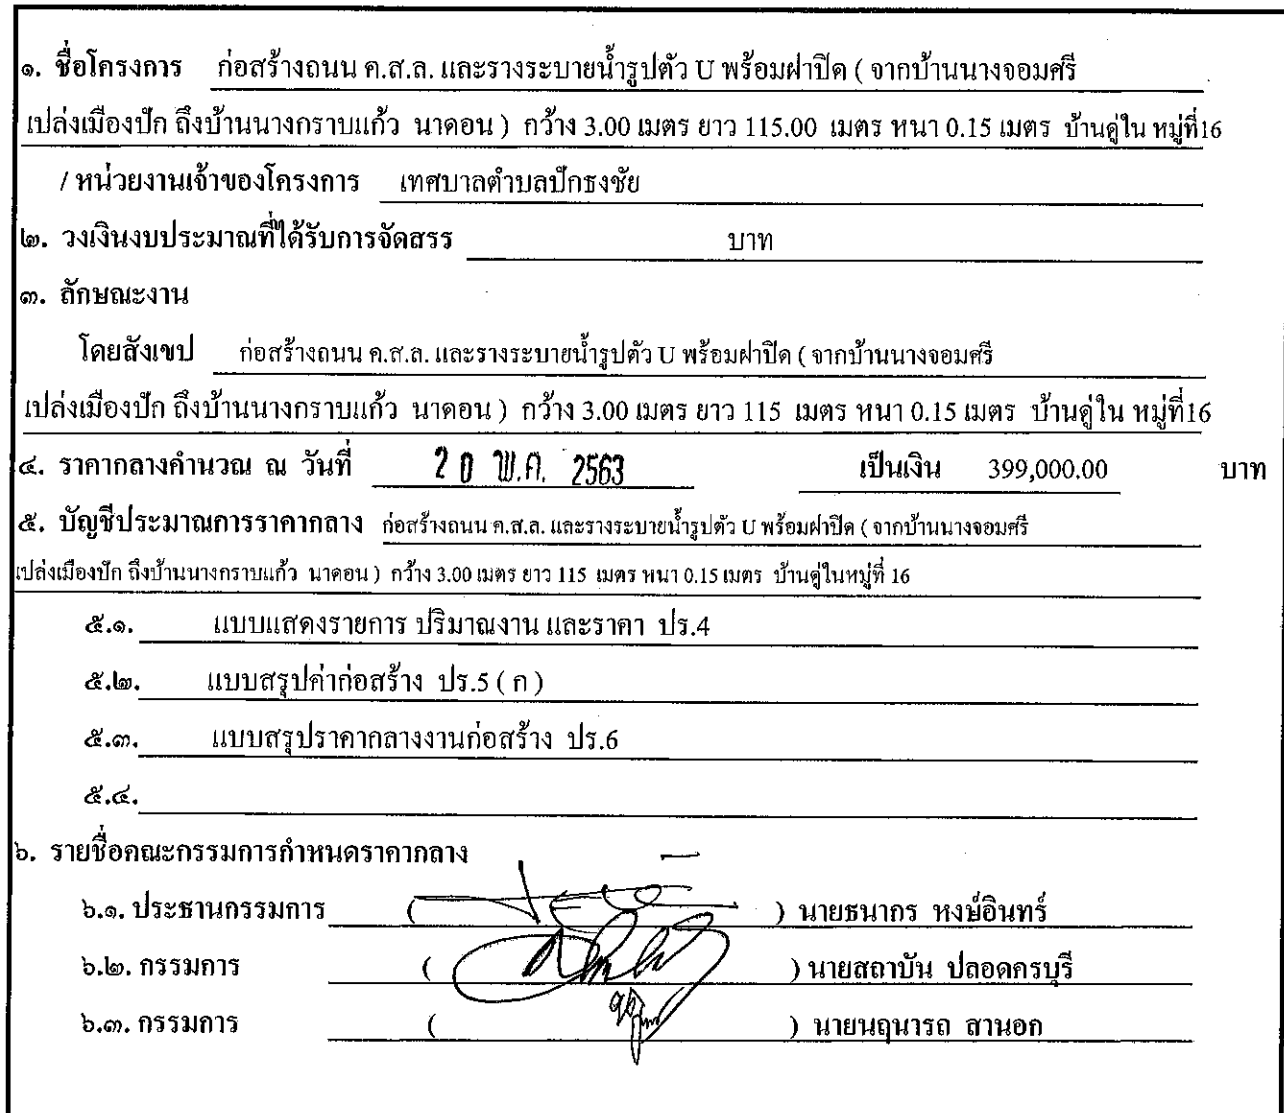 ๑. ชื่อโครงการ ก่อสร้างถนน ค.ส.ล. และรางระบายน้ำรูปตัว U พร้อมฝาปิด ( จากบ้านนางจอมศรี
เปล่งเมืองปัก ถึงบ้านนางกราบแก้ว นาดอน ) กว้าง 3.00 เมตร ยาว 115.00 เมตร หนา 0.15 เมตร บ้านดู่ใน หมู่ที่16
/ หน่วยงานเจ้าของโครงการ เทศบาลตำบลปักธงชัย
๒. วงเงินงบประมาณที่ได้รับการจัดสรร บาท
๓. ลักษณะงาน
โดยสังเขป ก่อสร้างถนน ค.ส.ล. และรางระบายน้ำรูปตัว U พร้อมฝาปิด ( จากบ้านนางจอมศรี
เปล่งเมืองปัก ถึงบ้านนางกราบแก้ว นาดอน ) กว้าง 3.00 เมตร ยาว 115 เมตร หนา 0.15 เมตร บ้านดู่ใน หมู่ที่16
๔. ราคากลางคำนวณ ณ วันที่ 20 พ.ค. 2563 เป็นเงิน 399,000.00 บาท
๕. บัญชีประมาณการราคากลาง ก่อสร้างถนน ค.ส.ล. และรางระบายน้ำรูปตัว U พร้อมฝาปิด ( จากบ้านนางจอมศรี
เปล่งเมืองปัก ถึงบ้านนางกราบแก้ว นาดอน ) กว้าง 3.00 เมตร ยาว 115 เมตร หนา 0.15 เมตร บ้านดู่ในหมู่ที่ 16
๕.๑. แบบแสดงรายการ ปริมาณงาน และราคา ปร.4
๕.๒. แบบสรุปค่าก่อสร้าง ปร.5 ( ก )
๕.๓. แบบสรุปราคากลางงานก่อสร้าง ปร.6
๕.๔.
๖. รายชื่อคณะกรรมการกำหนดราคากลาง
๖.๑. ประธานกรรมการ ( ) นายธนากร หงษ์อินทร์
๖.๒. กรรมการ ( ) นายสถาบัน ปลอดครบุรี
๖.๓. กรรมการ ( ) นายนฤนารถ สานอก